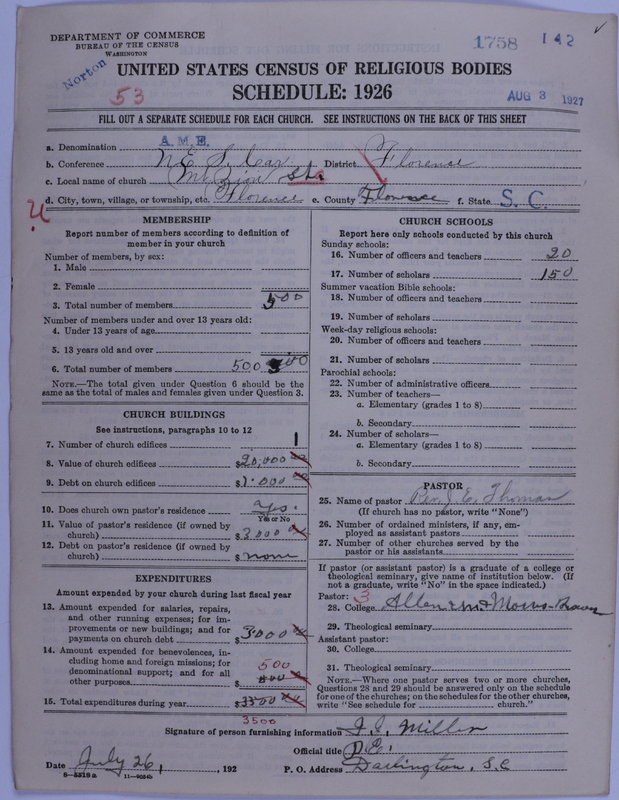 DEPARTMENT OF COMMERCE
BUREAU OF THE CENSUS
WASHINGTON
1758 142
Norton
53
UNITED STATES CENSUS OF RELIGIOUS BODIES
SCHEDULE: 1926
AUG 3 1927
FILL OUT A SEPARATE SCHEDULE FOR EACH CHURCH. SEE INSTRUCTIONS ON THE BACK OF THIS SHEET
a. Denomination A.M.E.
b. Conference N.E. S. Car District Florence
c. Local name of church Mt Zion Sta
d. City, town, village, or township, etc. Florence e. County Florence f. State S. C.
MEMBERSHIP
Report number of members according to definition of member in your church
Number of members, by sex:
1. Male
2. Female
3. Total number of members 500
Number of members under and over 13 years old:
4. Under 13 years of age
5. 13 years old and over
6. Total number of members 500
NOTE.—The total given under Question 6 should be the
same as the total of males and females given under Question 3.
CHURCH BUILDINGS
See instructions, paragraphs 10 to 12
7. Number of church edifices 1
8. Value of church edifices $20,000
9. Debt on church edifices $1.000
10. Does church own pastor's residence yes.
Yes or No
11. Value of pastor's residence (if owned by
church) $3,000
12. Debt on pastor's residence (if owned by
church) $none
EXPENDITURES
Amount expended by your church during last fiscal year
13. Amount expended for salaries, repairs,
and other running expenses; for im-
provements or new buildings; and for
payments on church debt $3.000
14. Amount expended for benevolences, in-
cluding home and foreign missions; for
denominational support; and for all
other purposes $ 500
15. Total expenditures during year $3500
3500
CHURCH SCHOOLS
Report here only schools conducted by this church
Sunday schools:
16. Number of officers and teachers 20
17. Number of scholars 150
Summer vacation Bible schools:
18. Number of officers and teachers
19. Number of scholars
Week-day religious schools:
20. Number of officers and teachers
21. Number of scholars
Parochial schools:
22. Number of administrative officers
23. Number of teachers—
a. Elementary (grades 1 to 8)
b. Secondary
24. Number of scholars—
a. Elementary (grades 1 to 8)
b. Secondary
PASTOR
25. Name of pastor Rev. J. E. Thomas
(If church has no pastor, write "None")
26. Number of ordained ministers, if any, em-
ployed as assistant pastors
27. Number of other churches served by the
pastor or his assistants
If pastor (or assistant pastor) is a graduate of a college or
theological seminary, give name of institution below. (If
not a graduate, write "No" in the space indicated.)
Pastor: 3
28. College Allen & Morris-Brown
29. Theological seminary
Assistant pastor:
30. College
31. Theological seminary
NOTE.—Where one pastor serves two or more churches,
Questions 28 and 29 should be answered only on the schedule
for one of the churches; on the schedules for the other churches,
write "See schedule for church."
Signature of person furnishing information Miller
Official title P.E.
Date July 26, , 192 P. O. Address Darlington, S.C
6—5318a 11—9034b